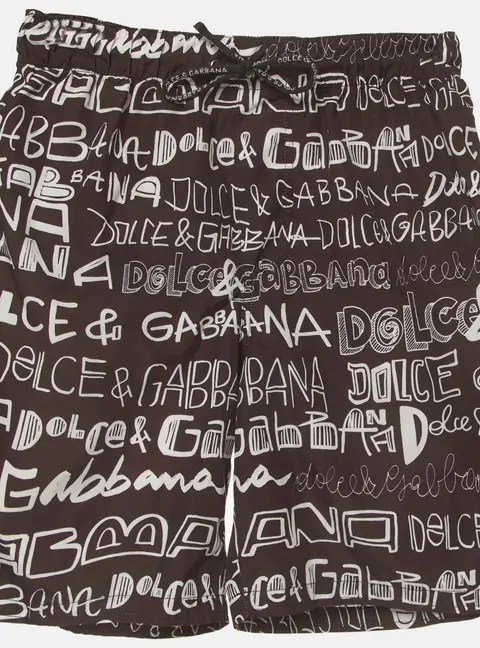 Gabbana dolce&gabbana
DOLCE & GABBANA DOLCE&GABBANA
GABBANA DOLCE
GABBANA Dolce & GabbANA DOLCE
GABBANA DOLCE & GABBANA Dolce
NA DOLCE & GABBANA DOLCE & GABBANA
ANA DOLCE & GABBANA dolce &
LCE & GABBANA DOLCE
DOLCE & GABBANA DOLCE
A Dolce & GabbANA Dolce
Gabbana dolce & gabbana
GABBANA DOLCE
GABBANA Dolce & GabbANA